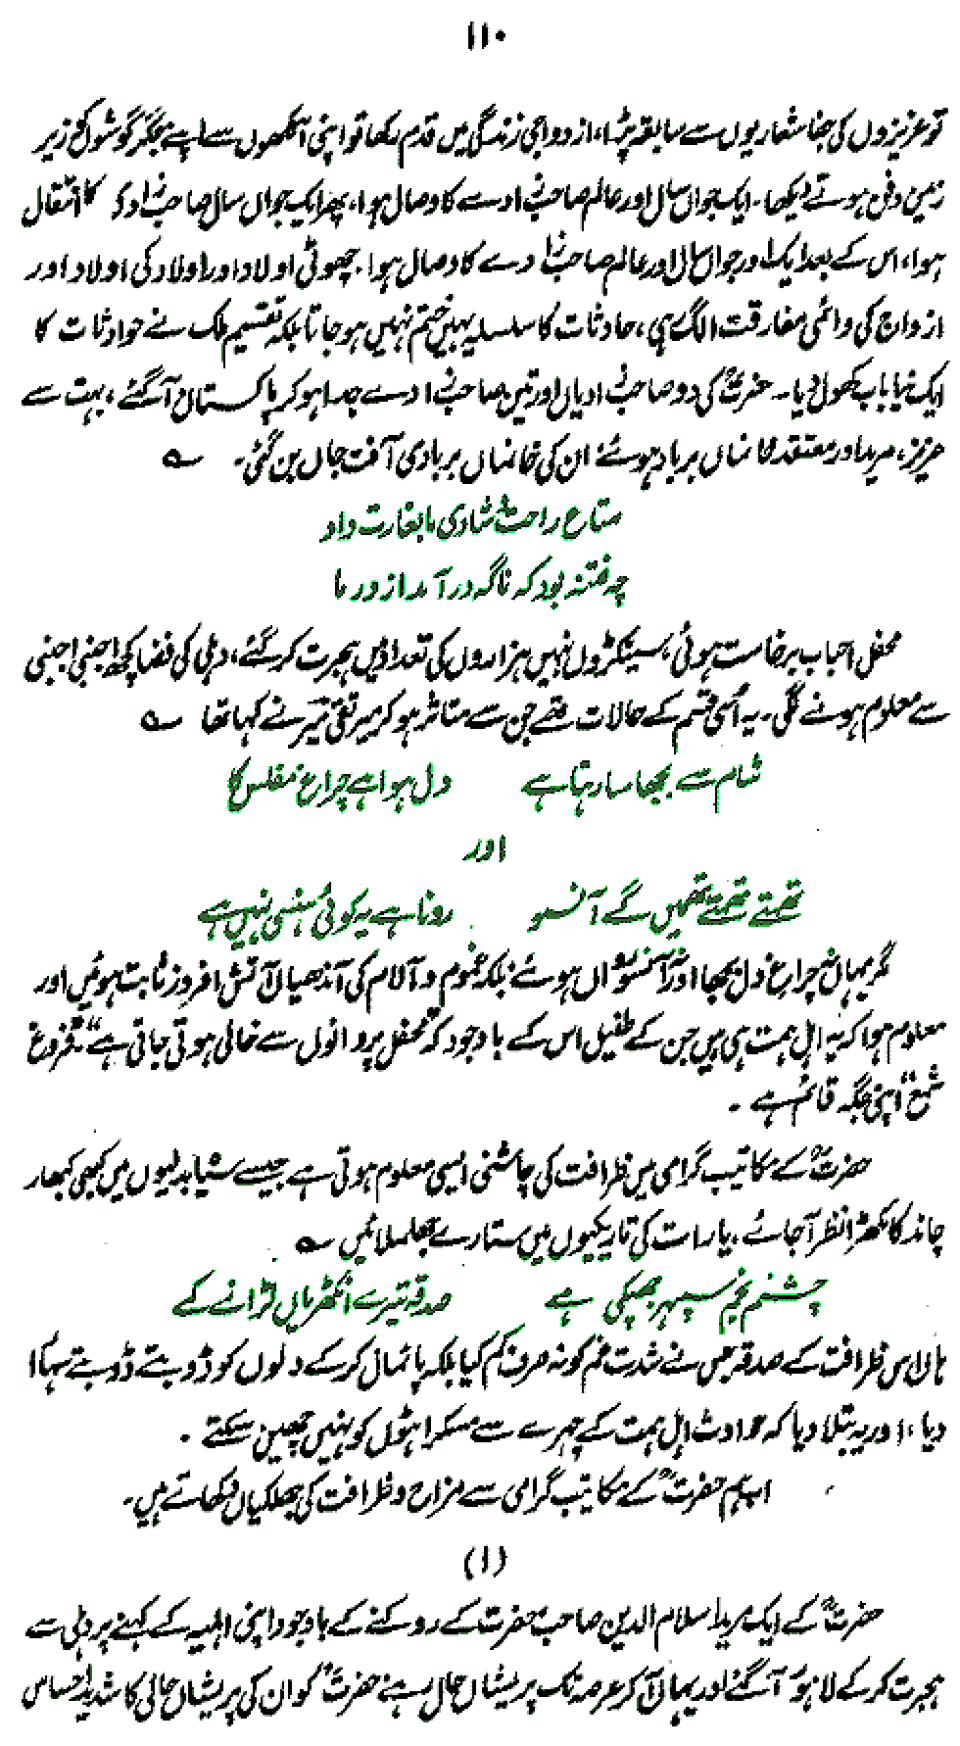 ۱۱۰
تو عزیزوں کی جفا شعاریوں سے سابقہ پڑا، ازدواجی زندگی میں قدم رکھا تو اپنی آنکھوں سے اپنے جگر گوشوں کو زیر
زمیں دفن ہوتے دیکھا۔ ایک جواں سال اور عالم صاحبزادے کا وصال ہوا، پھر ایک جواں سال صاحبزادی کا انتقال
ہوا، اس کے بعد ایک اور جواں سال اور عالم صاحبزادے کا وصال ہوا۔ چھوٹی اولاد اور اولاد کی اولاد اور
ازواج کی دائمی مفارقت الگ رہی، حادثات کا سلسلہ یہیں ختم نہیں ہو جاتا بلکہ تقسیم ملک نے حوادثات کا
ایک نیا باب کھول دیا۔ حضرتؒ کی دو صاحبزادیاں اور تین صاحبزادے جدا ہو کر پاکستان آ گئے، بہت سے
عزیز، مرید اور معتقد خانماں برباد ہوئے ان کی خانماں بربادی آفت جاں بن گئی۔ ؎
متاع راحت و شادی ما بغارت داد
چہ فتنہ بود کہ ناگہ در آمد از در ما
محفل احباب برخاست ہوئی، سینکڑوں نہیں ہزاروں کی تعداد میں ہجرت کر گئے، دہلی کی فضا کچھ اجنبی اجنبی
سے معلوم ہونے لگی۔ یہ اُسی قسم کے حالات تھے جن سے متاثر ہو کر میر تقی میرؔ نے کہا تھا ؎
شام سے بجھا سا رہتا ہے دل ہوا ہے چراغ مفلس کا
اور
تھمتے تھمتے تھمیں گے آنسو رونا ہے یہ کوئی ہنسی نہیں ہے
مگر یہاں نہ چراغ دل بجھا اور نہ آنسو رواں ہوئے بلکہ غموم و آلام کی آندھیاں آتش افروز ثابت ہوئیں اور
معلوم ہوا کہ یہ اہل ہمت ہی ہیں جن کے طفیل اس کے باوجود کہ "محفل پروانوں سے خالی ہوتی جاتی ہے"، "فروغ
شمع" اپنی جگہ قائم ہے۔
حضرتؒ کے مکاتیب گرامی میں ظرافت کی چاشنی ایسی معلوم ہوتی ہے جیسے سیاہ بدلیوں میں کبھی کبھار
چاند کا مکھڑا نظر آ جائے، یا رات کی تاریکیوں میں ستارے جھلملائیں ؎
چشم نجم سپہر جھپکی ہے صدقے تیرے انکھڑیاں لڑانے کے
ہاں اسی ظرافت کے صدقہ جس نے شدت غم کو نہ صرف کم کیا بلکہ پائمال کر کے دلوں کو ڈوبتے ڈوبتے سہارا
دیا، اور یہ بتلا دیا کہ حوادث اہل ہمت کے چہرے سے مسکراہٹوں کو نہیں چھین سکتے۔
اب ہم حضرتؒ کے مکاتیب گرامی سے مزاح و ظرافت کی جھلکیاں دکھاتے ہیں۔
(۱)
حضرتؒ کے ایک مرید اسلام الدین صاحب حضرت کے روکنے کے باوجود اپنی اہلیہ کے کہنے پر دہلی سے
ہجرت کر کے لاہور آ گئے اور یہاں آ کر عرصہ تک پریشاں حال رہے حضرتؒ کو ان کی پریشاں حالی کا شدید احساس